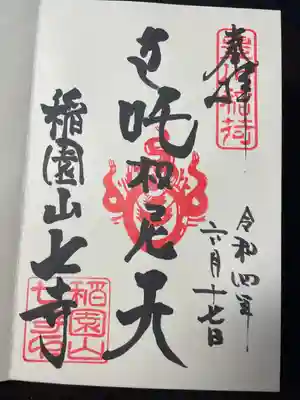 奉拝
令和四年
六月十七日
吒枳尼天
稲園山七寺
稲園山